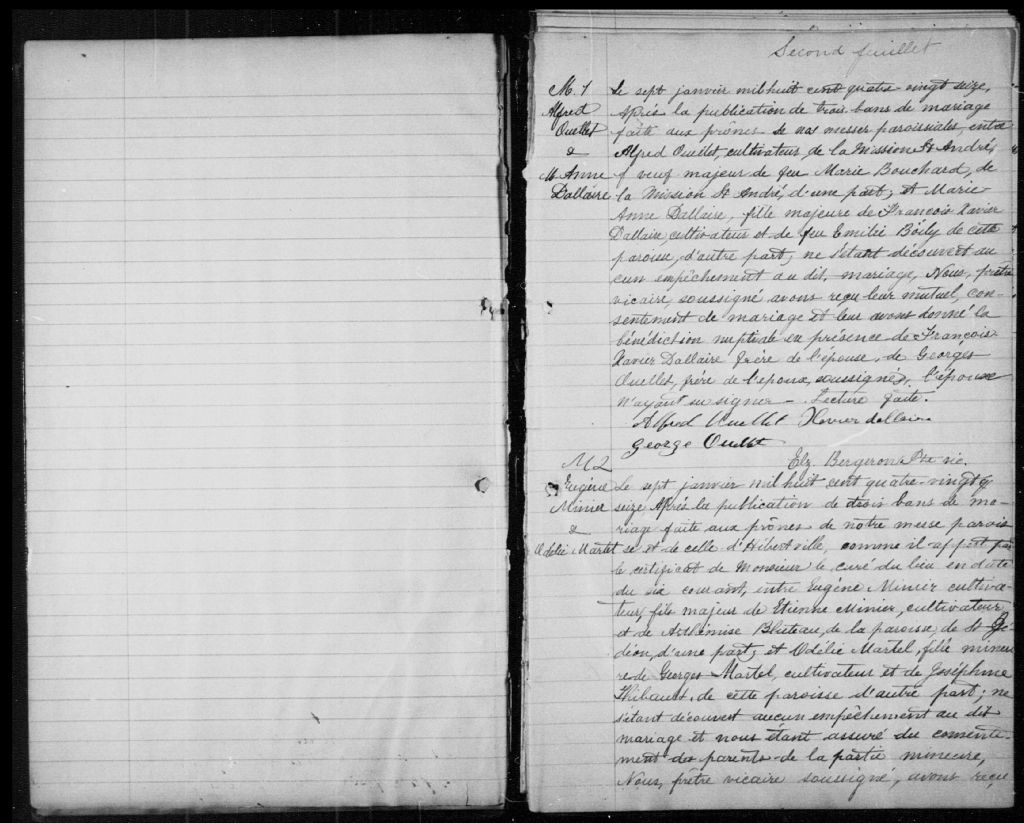 Second feuillet
M. 1
Alfred
Ouellet
&
M. Anne
Dallaire
Le sept janvier mil huit cent quatre vingt seize,
Après la publication de trois bans de mariage
faite aux prônes de nos messes paroissiales, entre
Alfred Ouellet, cultivateur, de la Mission St André,
veuf majeur de feu Marie Bouchard, de
la Mission St André, d'une part; et Marie
Anne Dallaire, fille majeure de François Xavier
Dallaire, cultivateur et de feu Emilie Boily de cette
paroisse, d'autre part; ne s'étant découvert au
cun empêchement au dit mariage, Nous, prêtre
vicaire, soussigné avons reçu leur mutuel con-
sentement de mariage et leur avons donné la
bénédiction nuptiale en présence de François
Xavier Dallaire frère de l'épouse, de Georges
Ouellet, frère de l'époux, soussignés. L'épouse
n'ayant su signer. Lecture faite.
Alfred Ouellet Xavier dallaire
George Ouellet
Elz. Bergeron Ptre vic.
M 2
Eugène
Minier
&
Odélie Martel
Le sept janvier mil huit cent quatre-vingt
seize, Après la publication de trois bans de ma-
riage faite aux prônes de notre messe parois
se et de celle d'Hébertville, comme il appert par
le certificat de Monsieur le curé du lieu en date
du six courant, entre Eugène Minier cultiva-
teur, fils majeur de Etienne Minier, cultivateur
et de Arthémise Bluteau, de la paroisse de St Gé
déon, d'une part; et Odélie Martel, fille mineu
re de Georges Martel, cultivateur et de Joséphine
Thibault, de cette paroisse d'autre part; ne
s'étant découvert aucun empêchement au dit
mariage et nous étant assuré du consente-
ment des parents de la partie mineure,
Nous, prêtre vicaire soussigné, avons reçu